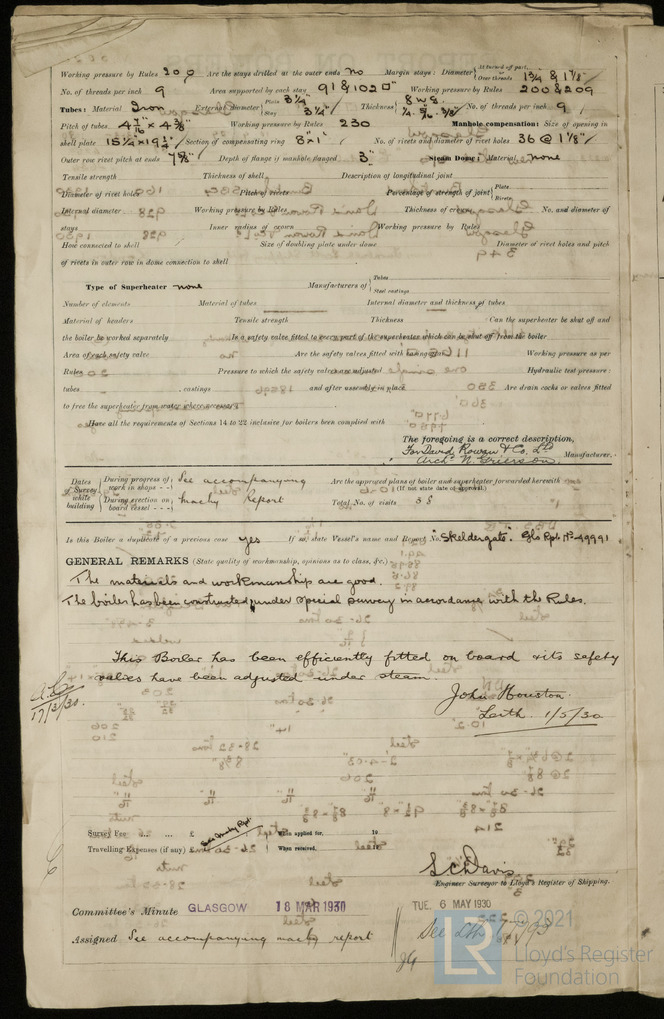 Working pressure by Rules 200 Are the stays drilled at the outer ends No Margin stays: Diameter { At turned off part, or Over threads 1 3/4 & 1 7/8"
No. of threads per inch 9 Area supported by each stay 91 & 102 □" Working pressure by Rules 200 & 209
Tubes: Material Iron External diameter { Plain 3 1/4" Stay 3 1/4" Thickness { 8 W.G. No. of threads per inch 9
Pitch of tubes 4 7/16" x 4 3/8" Working pressure by Rules 230 Manhole compensation: Size of opening in
shell plate 15 1/4" x 19 1/4" Section of compensating ring 8" x 1" No. of rivets and diameter of rivet holes 36 @ 1 1/8"
Outer row rivet pitch at ends 7 5/8" Depth of flange if manhole flanged 3" Steam Dome: Material None
Tensile strength Thickness of shell Description of longitudinal joint
Diameter of rivet holes Pitch of rivets Percentage of strength of joint { Plate Rivets
Internal diameter Working pressure by Rules Thickness of crown No. and diameter of
stays Inner radius of crown Working pressure by Rules
How connected to shell Size of doubling plate under dome Diameter of rivet holes and pitch
of rivets in outer row in dome connection to shell
Type of Superheater None Manufacturers of { Tubes Steel castings
Number of elements Material of tubes Internal diameter and thickness of tubes
Material of headers Tensile strength Thickness Can the superheater be shut off and
the boiler be worked separately Is a safety valve fitted to every part of the superheater which can be shut off from the boiler
Area of each safety valve Are the safety valves fitted with easing gear Working pressure as per
Rules Pressure to which the safety valves are adjusted Hydraulic test pressure:
tubes castings and after assembly in place Are drain cocks or valves fitted
to free the superheater from water where necessary
Have all the requirements of Sections 14 to 22 inclusive for boilers been complied with
The foregoing is a correct description,
For David Rowan & Co. Ld
Archd. N. Grierson Manufacturer.
Dates of Survey while building { During progress of work in shops - - } See accompanying Are the approved plans of boiler and superheater forwarded herewith
(If not state date of approval.)
{ During erection on board vessel - - - } machy Report Total No. of visits
Is this Boiler a duplicate of a previous case yes If so, state Vessel's name and Report No. "Skeldergate". Gls Rpt. No 49991
GENERAL REMARKS (State quality of workmanship, opinions as to class, &c.)
The materials and workmanship are good.
The boiler has been constructed under special survey in accordance with the Rules.
This Boiler has been efficiently fitted on board & its safety
valves have been adjusted under steam.
17/3/30.
John Houston.
Leith. 1/5/30
Survey Fee ... ... £ : : When applied for, 19
See Machy Rpt.
Travelling Expenses (if any) £ : : When received, 19
S C Davis
Engineer Surveyor to Lloyd's Register of Shipping.
Committee's Minute GLASGOW 18 MAR 1930 TUE. 6 MAY 1930
Assigned See accompanying machy report
© 2021
Lloyd's Register
Foundation
LR